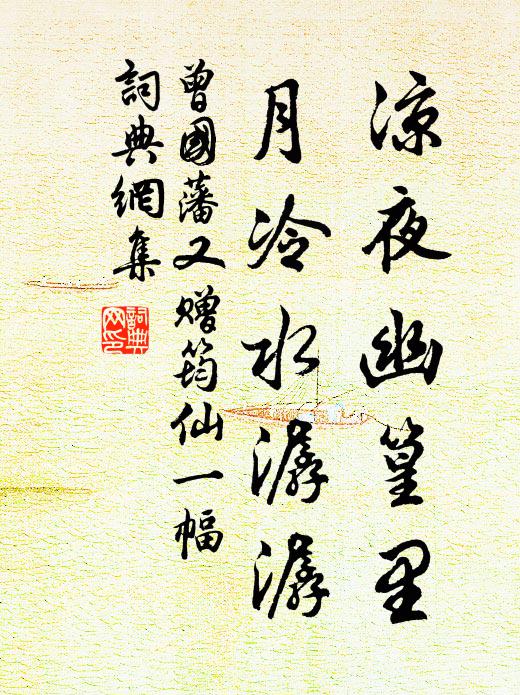 涼夜幽篁里
月冷水潺潺
曾國藩又贈筠仙一幅
詞典網集
詞典網印